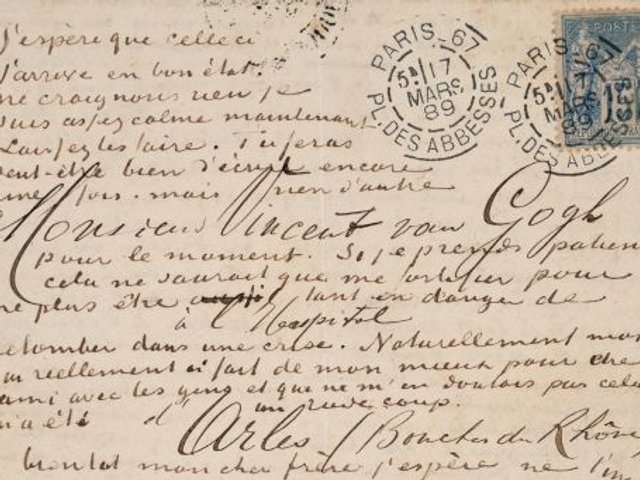 J'espère que celle ci
J'arrive en bon état.
ne craignons rien je
suis assez calme maintenant
Laissez les faire. Tu feras
peut-être bien d'écrire encore
une fois. mais rien d'autre
Monsieur Vincent van Gogh
pour le moment. Si je prends patien
cela ne saurait que me fortifier pour
ne plus être tant en danger de
à l'Hospital
retomber dans une crise. Naturellement moi
qui réellement ai fait de mon mieux pour être
ami avec les gens et que ne m'en doutais pas cela
m'a été un rude coup.
d'Arles (Bouches du Rhône
bientot mon cher frère j'espère ne t'in
PARIS_67
5E/17
MARS
89
PL. DES ABBESSES
PARIS_67
5E/17
MARS
89
PL. DES ABBESSES
POSTE
15